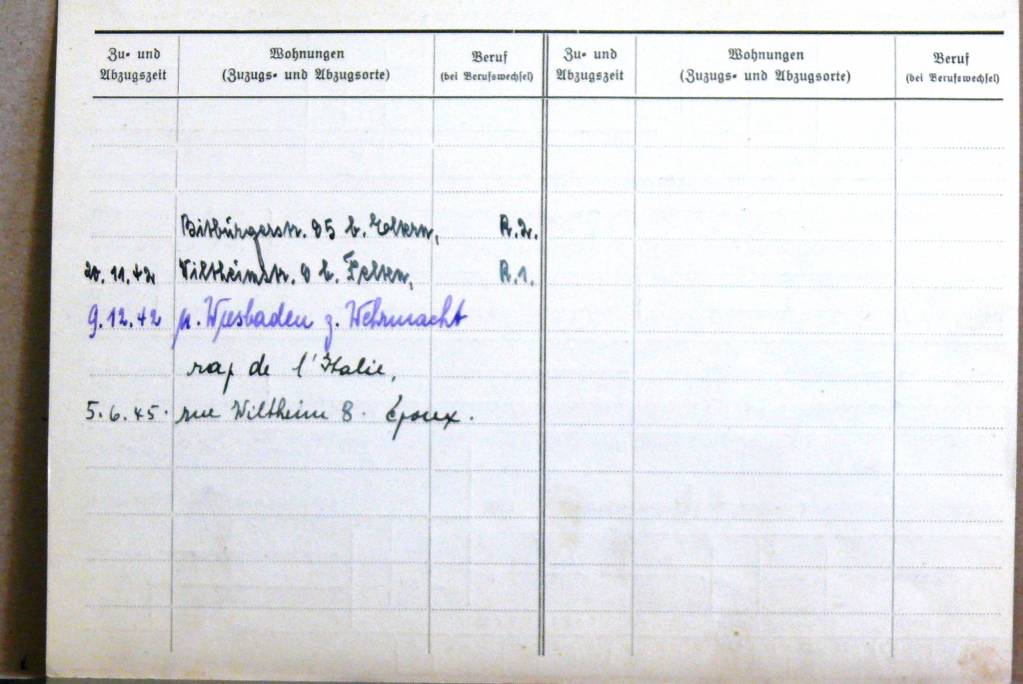 Zu- und Abzugszeit
Wohnungen (Zuzugs- und Abzugsorte)
Beruf (bei Berufswechsel)
Zu- und Abzugszeit
Wohnungen (Zuzugs- und Abzugsorte)
Beruf (bei Berufswechsel)
Bitburgerstr. 5 b. Eltern, R.2.
20.11.42 Wiltheimstr. 8 b. Felten, R.1.
9.12.42 n. Wiesbaden z. Wehrmacht
rap de l'Italie,
5.6.45. rue Wiltheim 8. Époux.